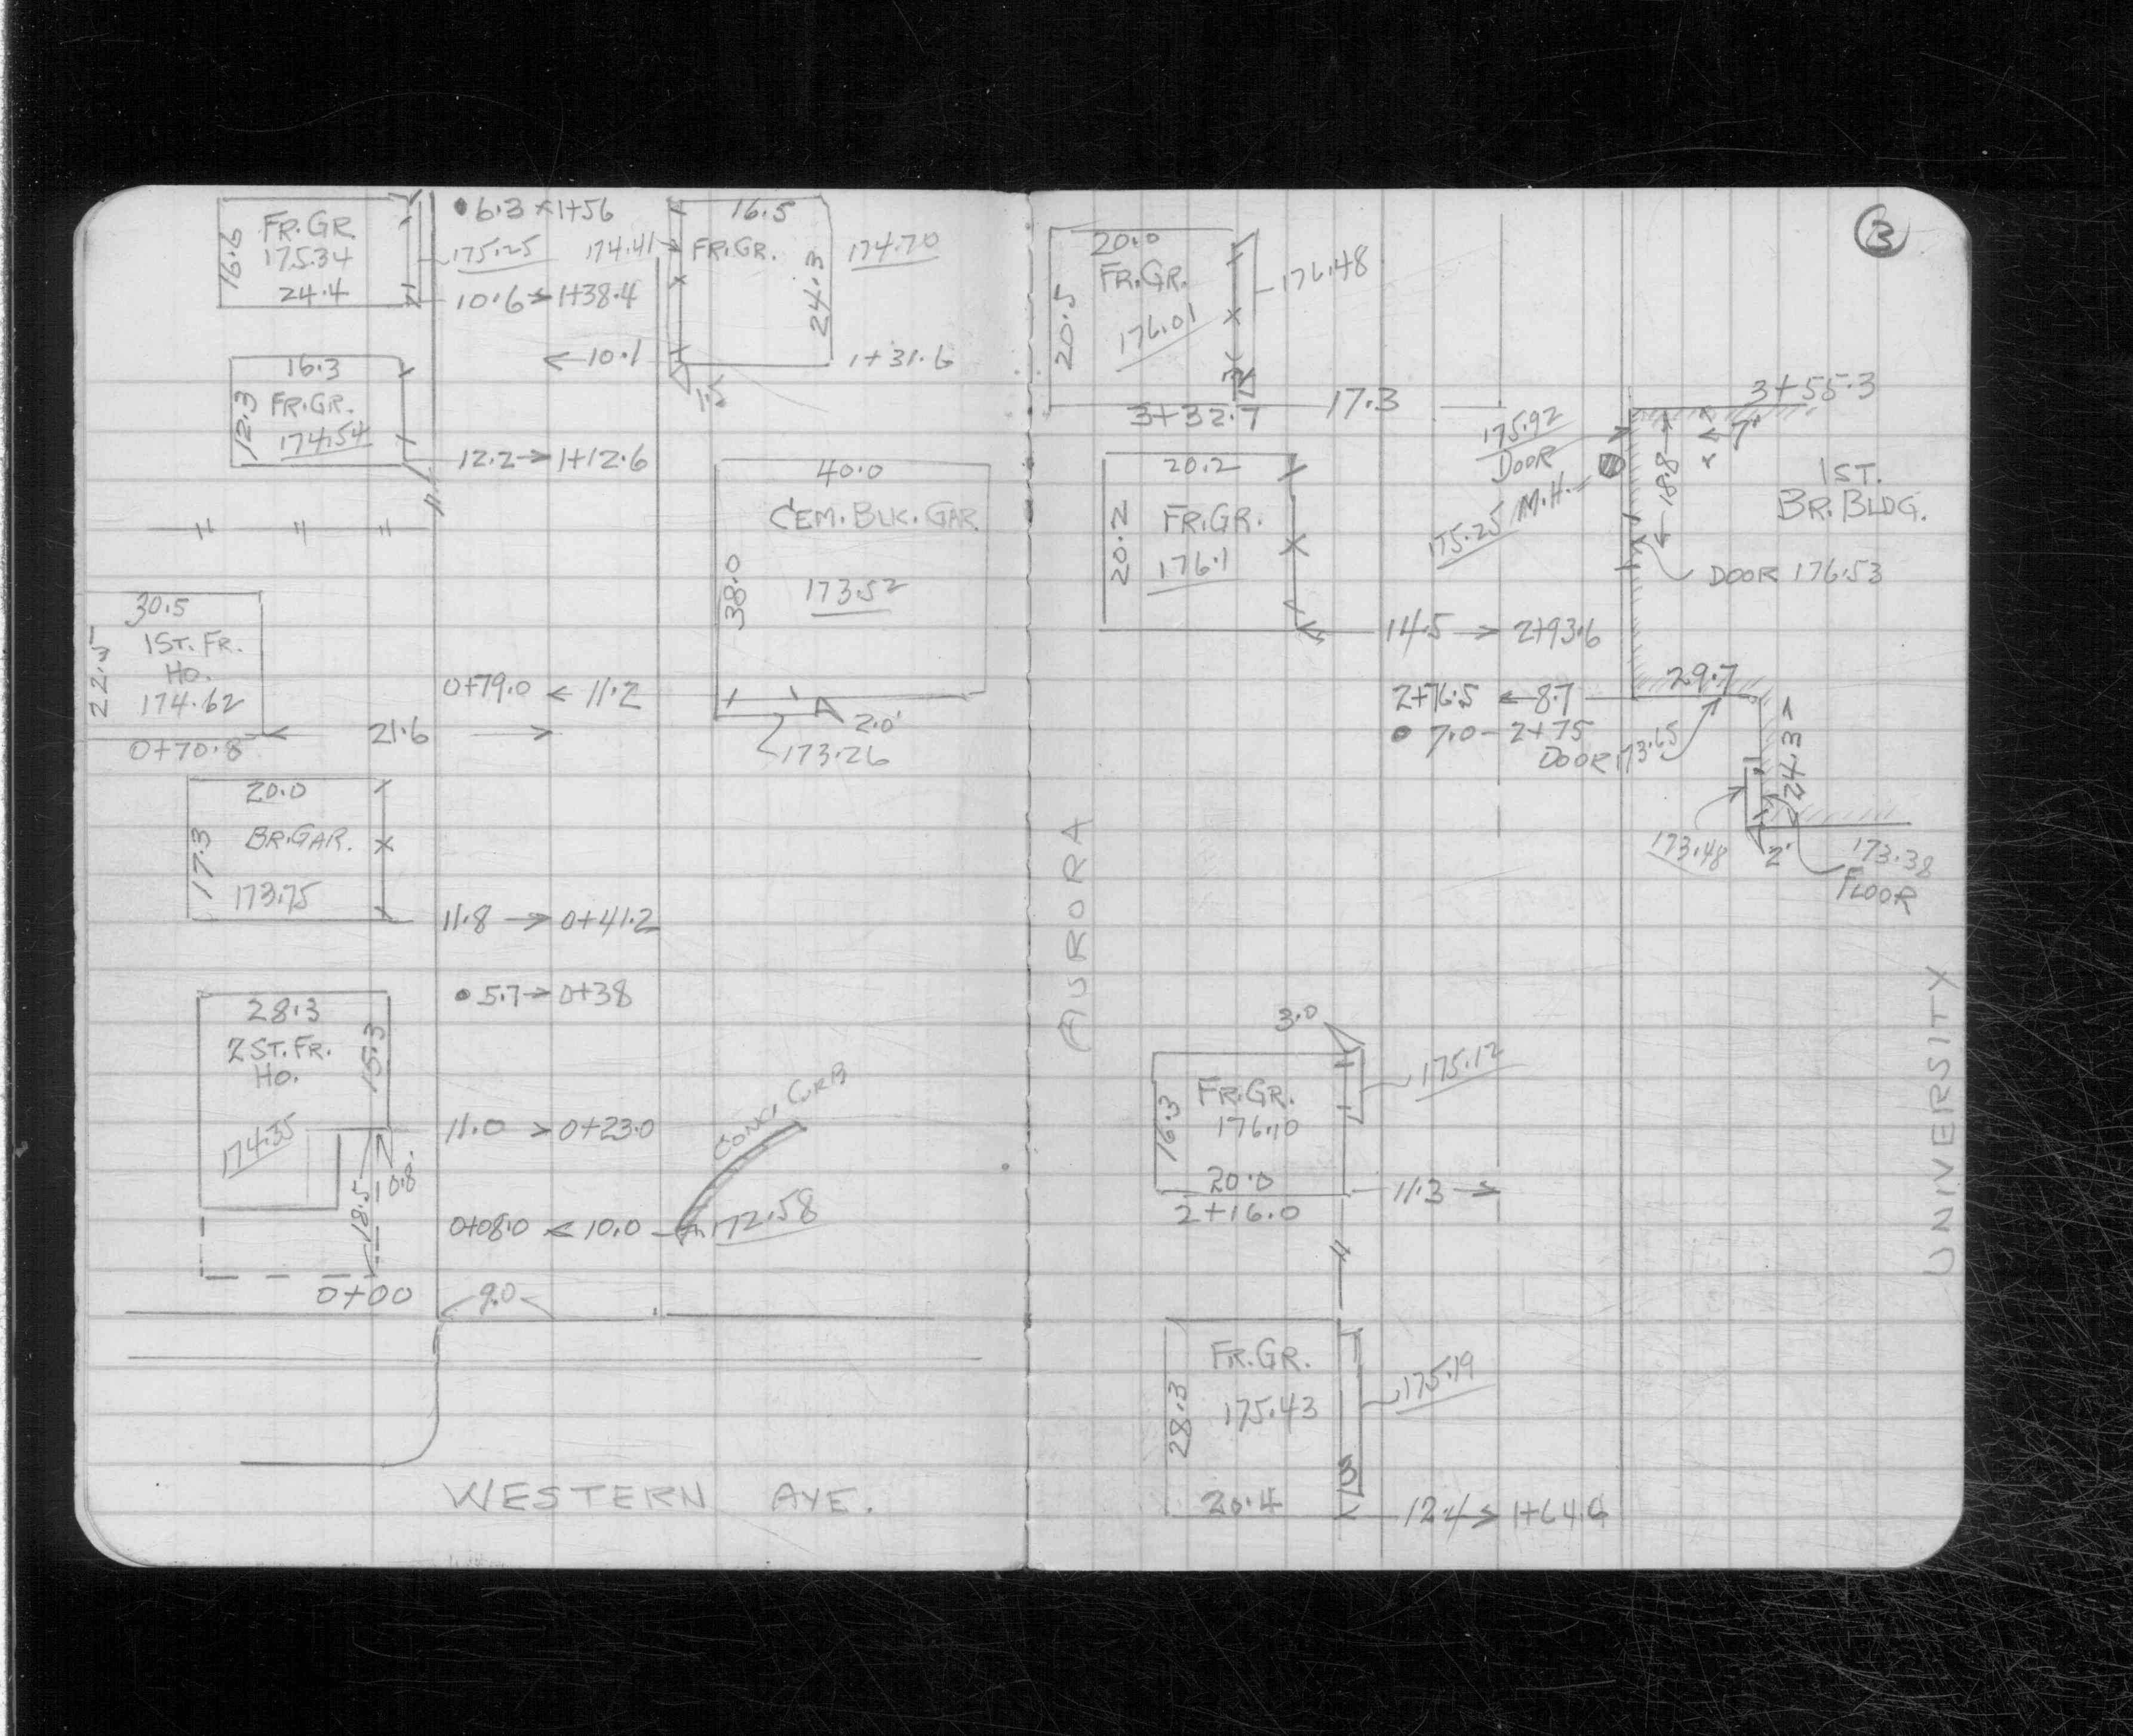 16.6
FR.GR
175.34
24.4
6.3 1+56
175.25
10.6 1+38.4
174.41
16.5
FR.GR.
24.3
174.70
10.1
1+31.6
1.5
16.3
12.3
FR.GR.
174.54
12.2 1+12.6
40.0
CEM. BLK. GAR.
38.0
173.52
30.5
22.5
1ST. FR.
HO.
174.62
0+70.8
21.6
0+79.0 11.2
2.0'
173.26
20.0
17.3
BR.GAR.
173.75
11.8 0+41.2
5.7 0+38
28.3
2ST. FR.
HO.
15.3
174.35
18.5
0.8
11.0 0+23.0
CONC. CURB
0+08.0 10.0 172.58
0+00
9.0
WESTERN AVE.
3
20.0
FR.GR.
20.5
176.01
176.48
3+32.7 17.3
3+55.3
175.92
DOOR
7'
18.8
1ST.
BR. BLDG.
175.25 M.H.
DOOR 176.53
20.2
20.2
FR.GR.
176.1
14.5 2+93.6
29.7
2+76.5 8.7
7.0 - 2+75
DOOR 173.65
24.3
173.48
2'
173.38
FLOOR
AURORA
UNIVERSITY
3.0
175.12
FR.GR.
16.3
176.10
20.0
11.3
2+16.0
FR.GR.
28.3
175.43
175.19
20.4
12.4 1+64.6